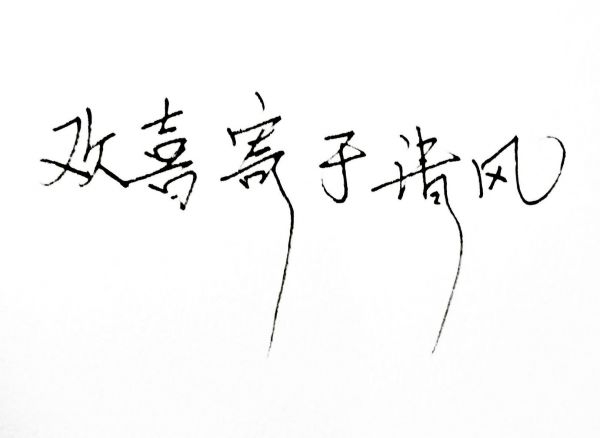 欢喜寄于清风